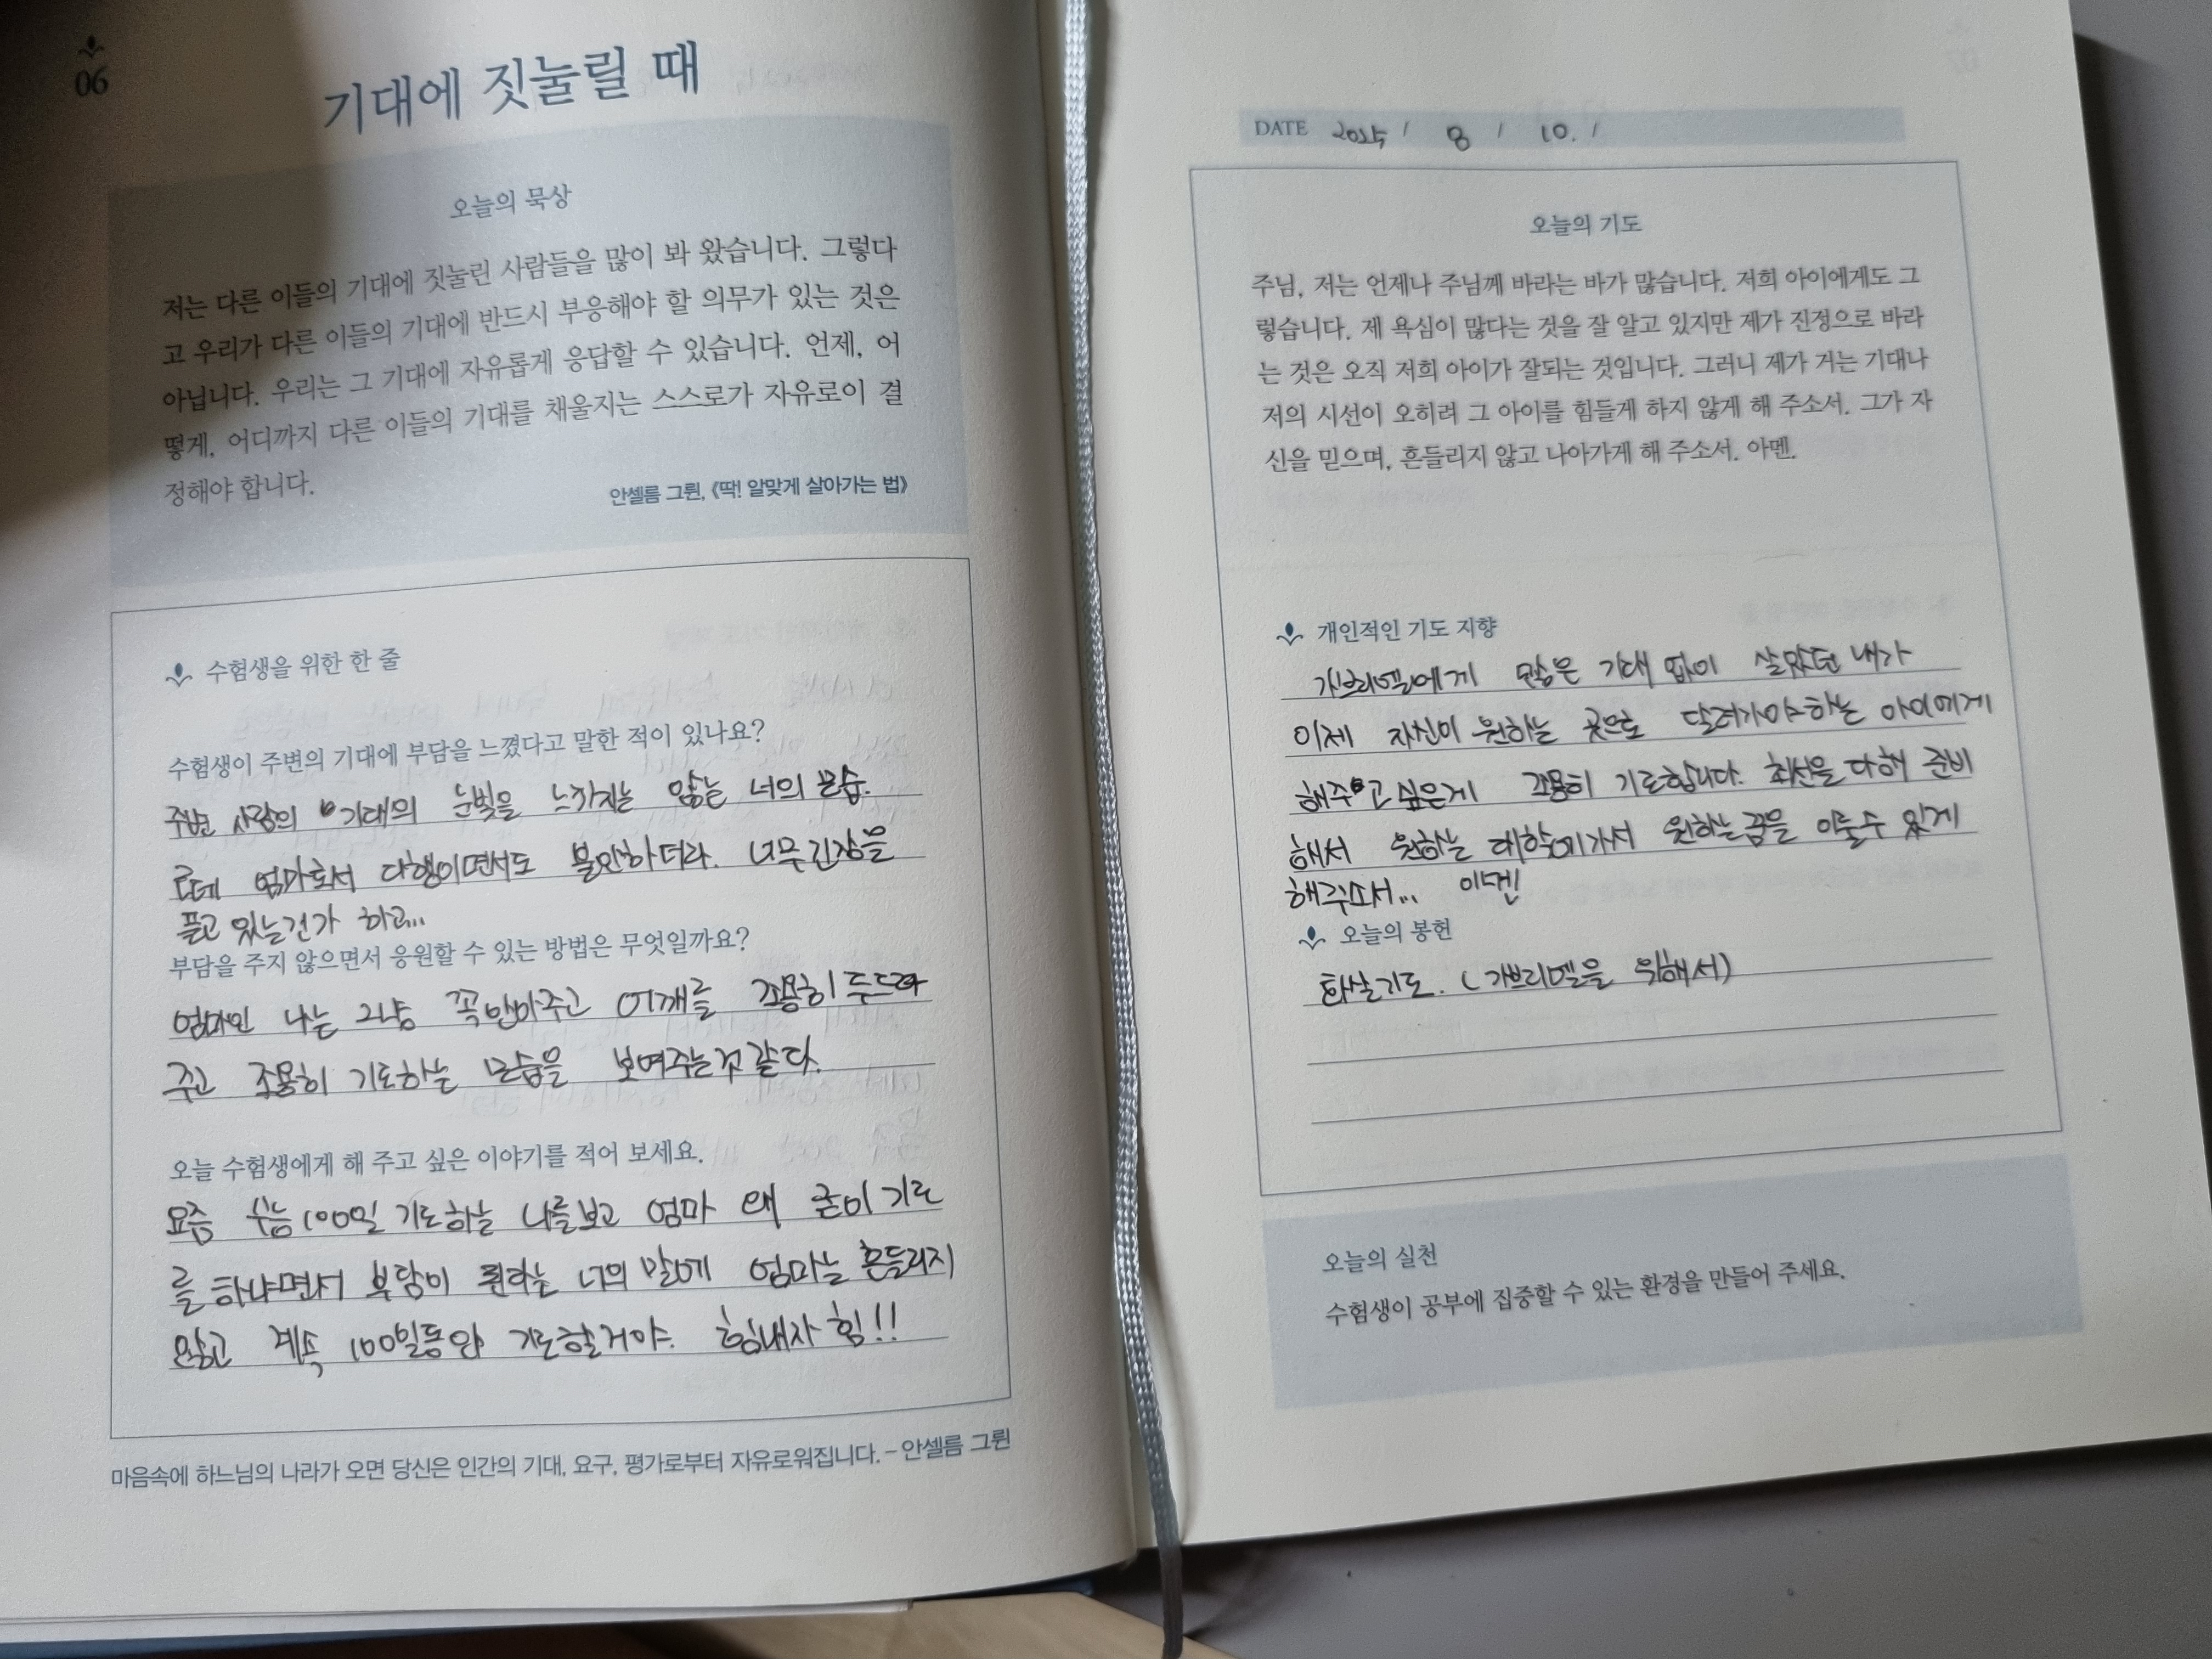 06
기대에 짓눌릴 때
오늘의 묵상
저는 다른 이들의 기대에 짓눌린 사람들을 많이 봐 왔습니다. 그렇다
고 우리가 다른 이들의 기대에 반드시 부응해야 할 의무가 있는 것은
아닙니다. 우리는 그 기대에 자유롭게 응답할 수 있습니다. 언제, 어
떻게, 어디까지 다른 이들의 기대를 채울지는 스스로가 자유로이 결
정해야 합니다.
안셀름 그륀, 《딱! 알맞게 살아가는 법》
수험생을 위한 한 줄
수험생이 주변의 기대에 부담을 느꼈다고 말한 적이 있나요?
주변 사람의 기대의 눈빛을 느끼지는 않는 너의 모습.
근데 엄마로서 다행이면서도 불안하더라. 너무 긴장을
풀고 있는건가 하고...
부담을 주지 않으면서 응원할 수 있는 방법은 무엇일까요?
엄마인 나는 그냥 꼭 안아주고 어깨를 조용히 두드려
주고 조용히 기도하는 모습을 보여주는것 같다.
오늘 수험생에게 해 주고 싶은 이야기를 적어 보세요.
요즘 수능 100일 기도하는 나를보고 엄마 왜 굳이 기도
를 하냐면서 부담이 된다는 너의 말에 엄마는 흔들리지
않고 계속 100일동안 기도할거야. 힘내자 힘!!
마음속에 하느님의 나라가 오면 당신은 인간의 기대, 요구, 평가로부터 자유로워집니다. – 안셀름 그륀
DATE 2025 / 8 / 10. /
오늘의 기도
주님, 저는 언제나 주님께 바라는 바가 많습니다. 저희 아이에게도 그
렇습니다. 제 욕심이 많다는 것을 잘 알고 있지만 제가 진정으로 바라
는 것은 오직 저희 아이가 잘되는 것입니다. 그러니 제가 거는 기대나
저의 시선이 오히려 그 아이를 힘들게 하지 않게 해 주소서. 그가 자
신을 믿으며, 흔들리지 않고 나아가게 해 주소서. 아멘.
개인적인 기도 지향
가브리엘에게 많은 기대 없이 살았던 내가
이제 자신이 원하는 곳으로 달려가야하는 아이에게
해주고 싶은게 조용히 기도합니다. 최선을 다해 준비
해서 원하는 대학에가서 원하는 꿈을 이룰수 있게
해주소서... 아멘!
오늘의 봉헌
화살기도. (가브리엘을 위해서)
오늘의 실천
수험생이 공부에 집중할 수 있는 환경을 만들어 주세요.